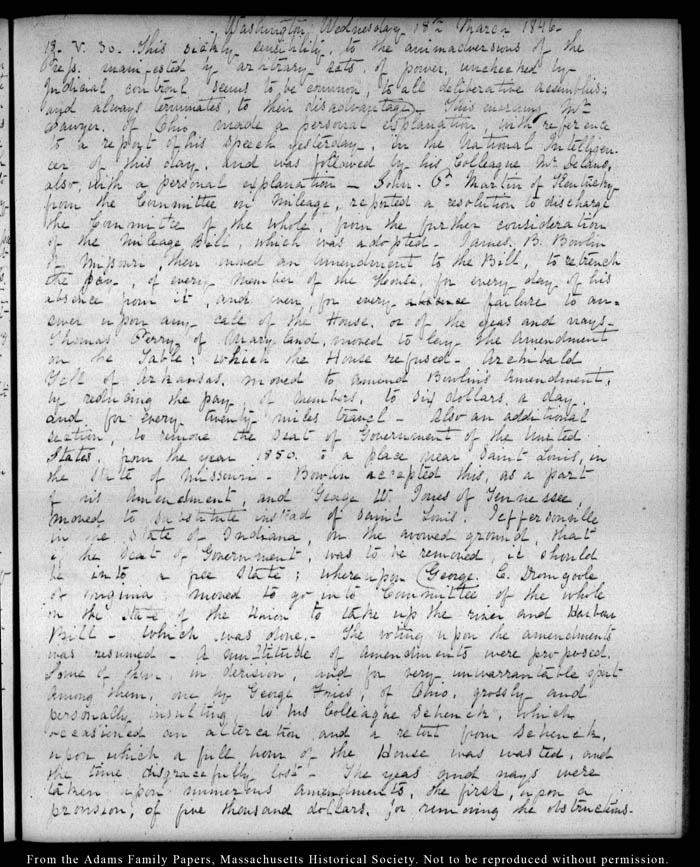 Washington, Wednesday 18th March 1846-
18. V. 30. This sickly sensibility, to the animadversions of the
Press manifested by arbitrary acts, of power, unchecked by
Judicial controul, seems to be common, to all deliberative assemblies;
and always terminates, to their disadvantage. This morning Mr
Sawyer, of Ohio, made a personal explanation, with reference
to a report of his speech yesterday, in the National Intelligen-
cer of this day, and was followed by his Colleague Mr Delano,
also, with a personal explanation - John. P. Martin of Kentucky
from the Committee on Mileage, reported a resolution to discharge
the Committee of the whole, from the further consideration
of the Mileage Bill, which was adopted. James. B. Bowlin
of Missouri, then moved an amendment to the Bill, to retrench
the pay, of every member of the House, for every day of his
absence from it, and even, for every absence failure to an-
swer upon any call of the House, or of the yeas and nays-
Thomas Perry, of Maryland, moved to lay the amendment
on the Table; which the House refused - Archibald
Yell of Arkansas, moved to amend Bowlin's amendment,
by reducing the pay, of members, to six dollars, a day,
and, for every twenty miles travel - Also an additional
section, to remove the Seat of Government of the United
States, from the year 1850. to a place near Saint Louis, in
the State of Missouri - Bowlin accepted this, as a part
of his amendment, and George W. Jones of Tennessee,
moved to substitute instead of Saint Louis, Jeffersonville
in the State of Indiana, on the avowed ground, that
if the Seat of Government, was to be removed, it should
be into a free State; whereupon George. C. Dromgoole
of Virginia moved to go into Committee of the whole
on the State of the Union to take up the river and Harbour
Bill - which was done. - The voting upon the amendments
was resumed - A multitude of amendments were proposed.
Some of them, in derision, and for very unwarrantable sport
among them, one by George Fries, of Ohio, grossly and
personally insulting to his Colleague Schenck, which
occasioned an altercation and a retort from Schenck,
upon which a full hour of the House was wasted, and
the time disgracefully lost - The yeas and nays were
taken upon numerous amendments, the first, upon a
provision, of five thousand dollars, for removing the obstructions-
From the Adams Family Papers, Massachusetts Historical Society. Not to be reproduced without permission.